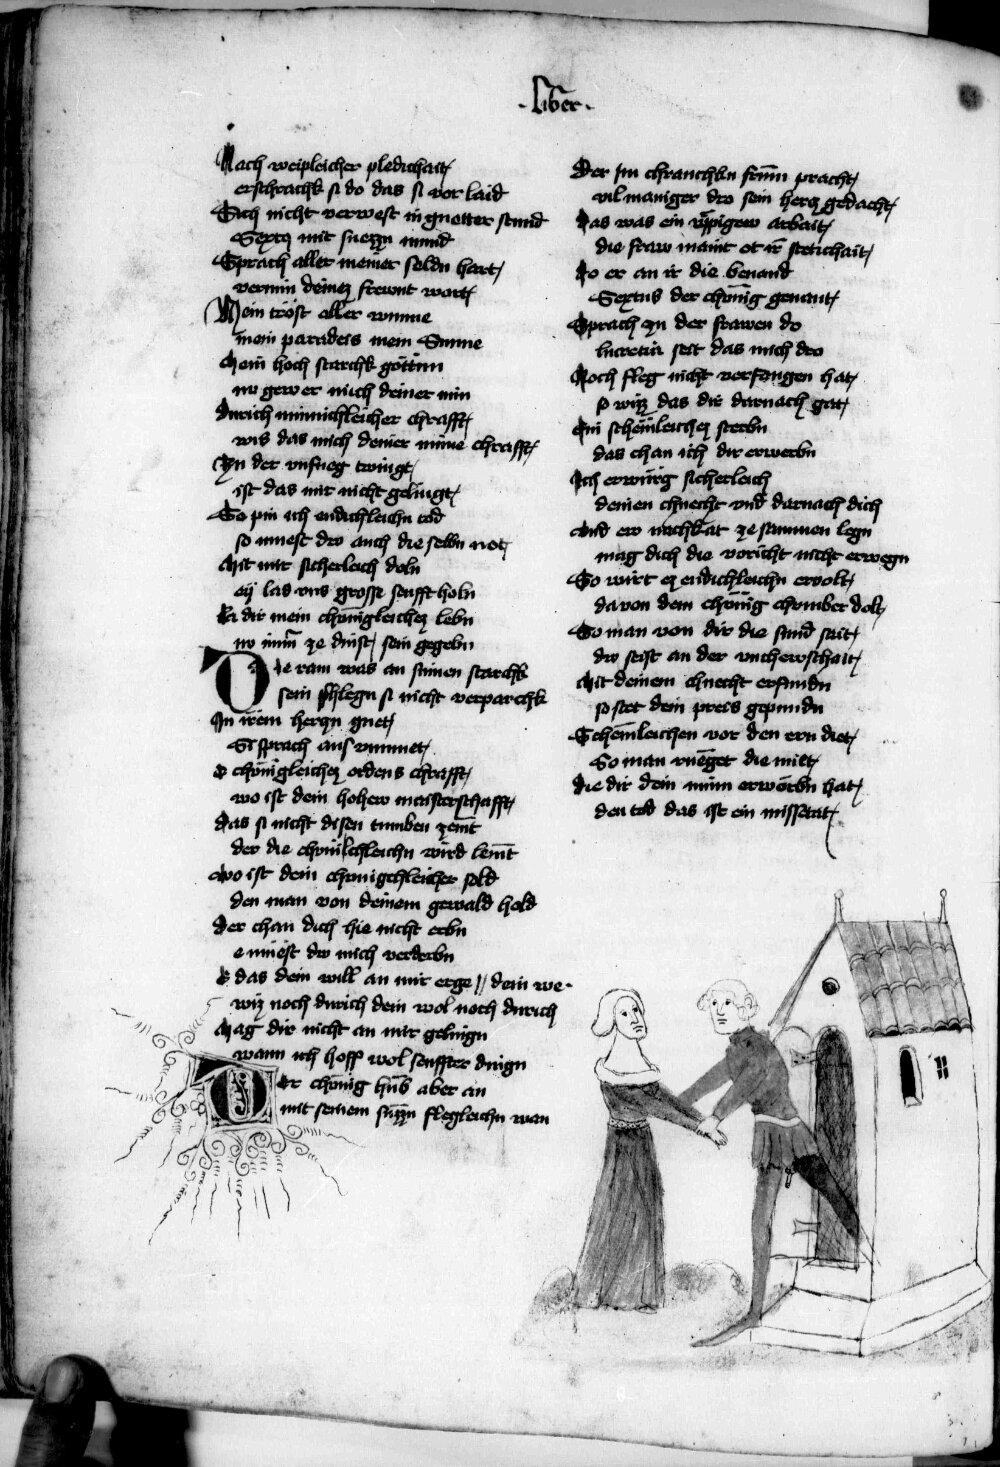 ·Liber·
Nach weipleicher pledichait
erschrachk si do das si vor laid
Sich nicht verwest in guetter stund
Sextq mit suezzn mund
Sprach aller meiner seldn hort
vernim deinez frewnt wort
Mein tröst aller wunne
mein paradeis mein Sunne
Mein hoch starchk göttinn
nv gewer mich deiner min
durich minnichleicher chrafft
wis das mich deiner minne chrafft
Zu der vnfueg twingt
ist das mir nicht gelingt
So pin ich endichleichn tod
so muest dv auch die selbn not
Mit mir sicherleich doln
ey las vns grosse senfft holn
La dir mein chünigleichez lebn
nv nim ze dinst sein gegebn
Die ram was an sinnen starchk
sein phlegn si nicht verparchk
In irem herczn guet
Si sprach aus vnmuet
O chünigleichez ordens chrafft
wo ist dein hoherv maisterschafft
das si nicht disen tumben zemt
der die chünichleichn wird lemt
Wo ist dein chunigchleicher sold
den man von deinem gewald hold
Der chan dich hie nicht erbn
e muest dv mich verderbn
E das dein will an mir erge // dein we·
wiz noch durich dein wol noch durich
Mag dir nicht an mir gelingn
wann ich hoff wol senffter dingn
Der chönig hub aber an
mit seinem süzzn flegleichn wan
Der im chranchkn frumm pracht
vil maniger dro sein hercz gedacht
Das was ein üppigew arbait
die fraw maint ot ir stetichait
Do er an ir die benand
Sextus der chönig genant
Sprach zu der frawen do
lucretia seit das mich dro
Noch fleg nicht verfangen hat
so wizz das dir darnach gat
Ein schemleichez sterbn
das chan ich dir erwerbn
Ich erwürg sicherleich
deinen chnecht vnd darnach dich
Vnd ew nachkat ze sammen legn
mag dich die voricht nicht erwegn
So wirt ez endichleichn ervolt
da von dem chünig chomber dolt
So man von dir die sund sait
dw seist an der vnchewschait
Mit deinem chnecht erfundn
so stet dein preis gepundn
Schemleichen vor den ern diet
So man rueget die miet
die dir dein minn erwörbn hat
den tod das ist ein missetat